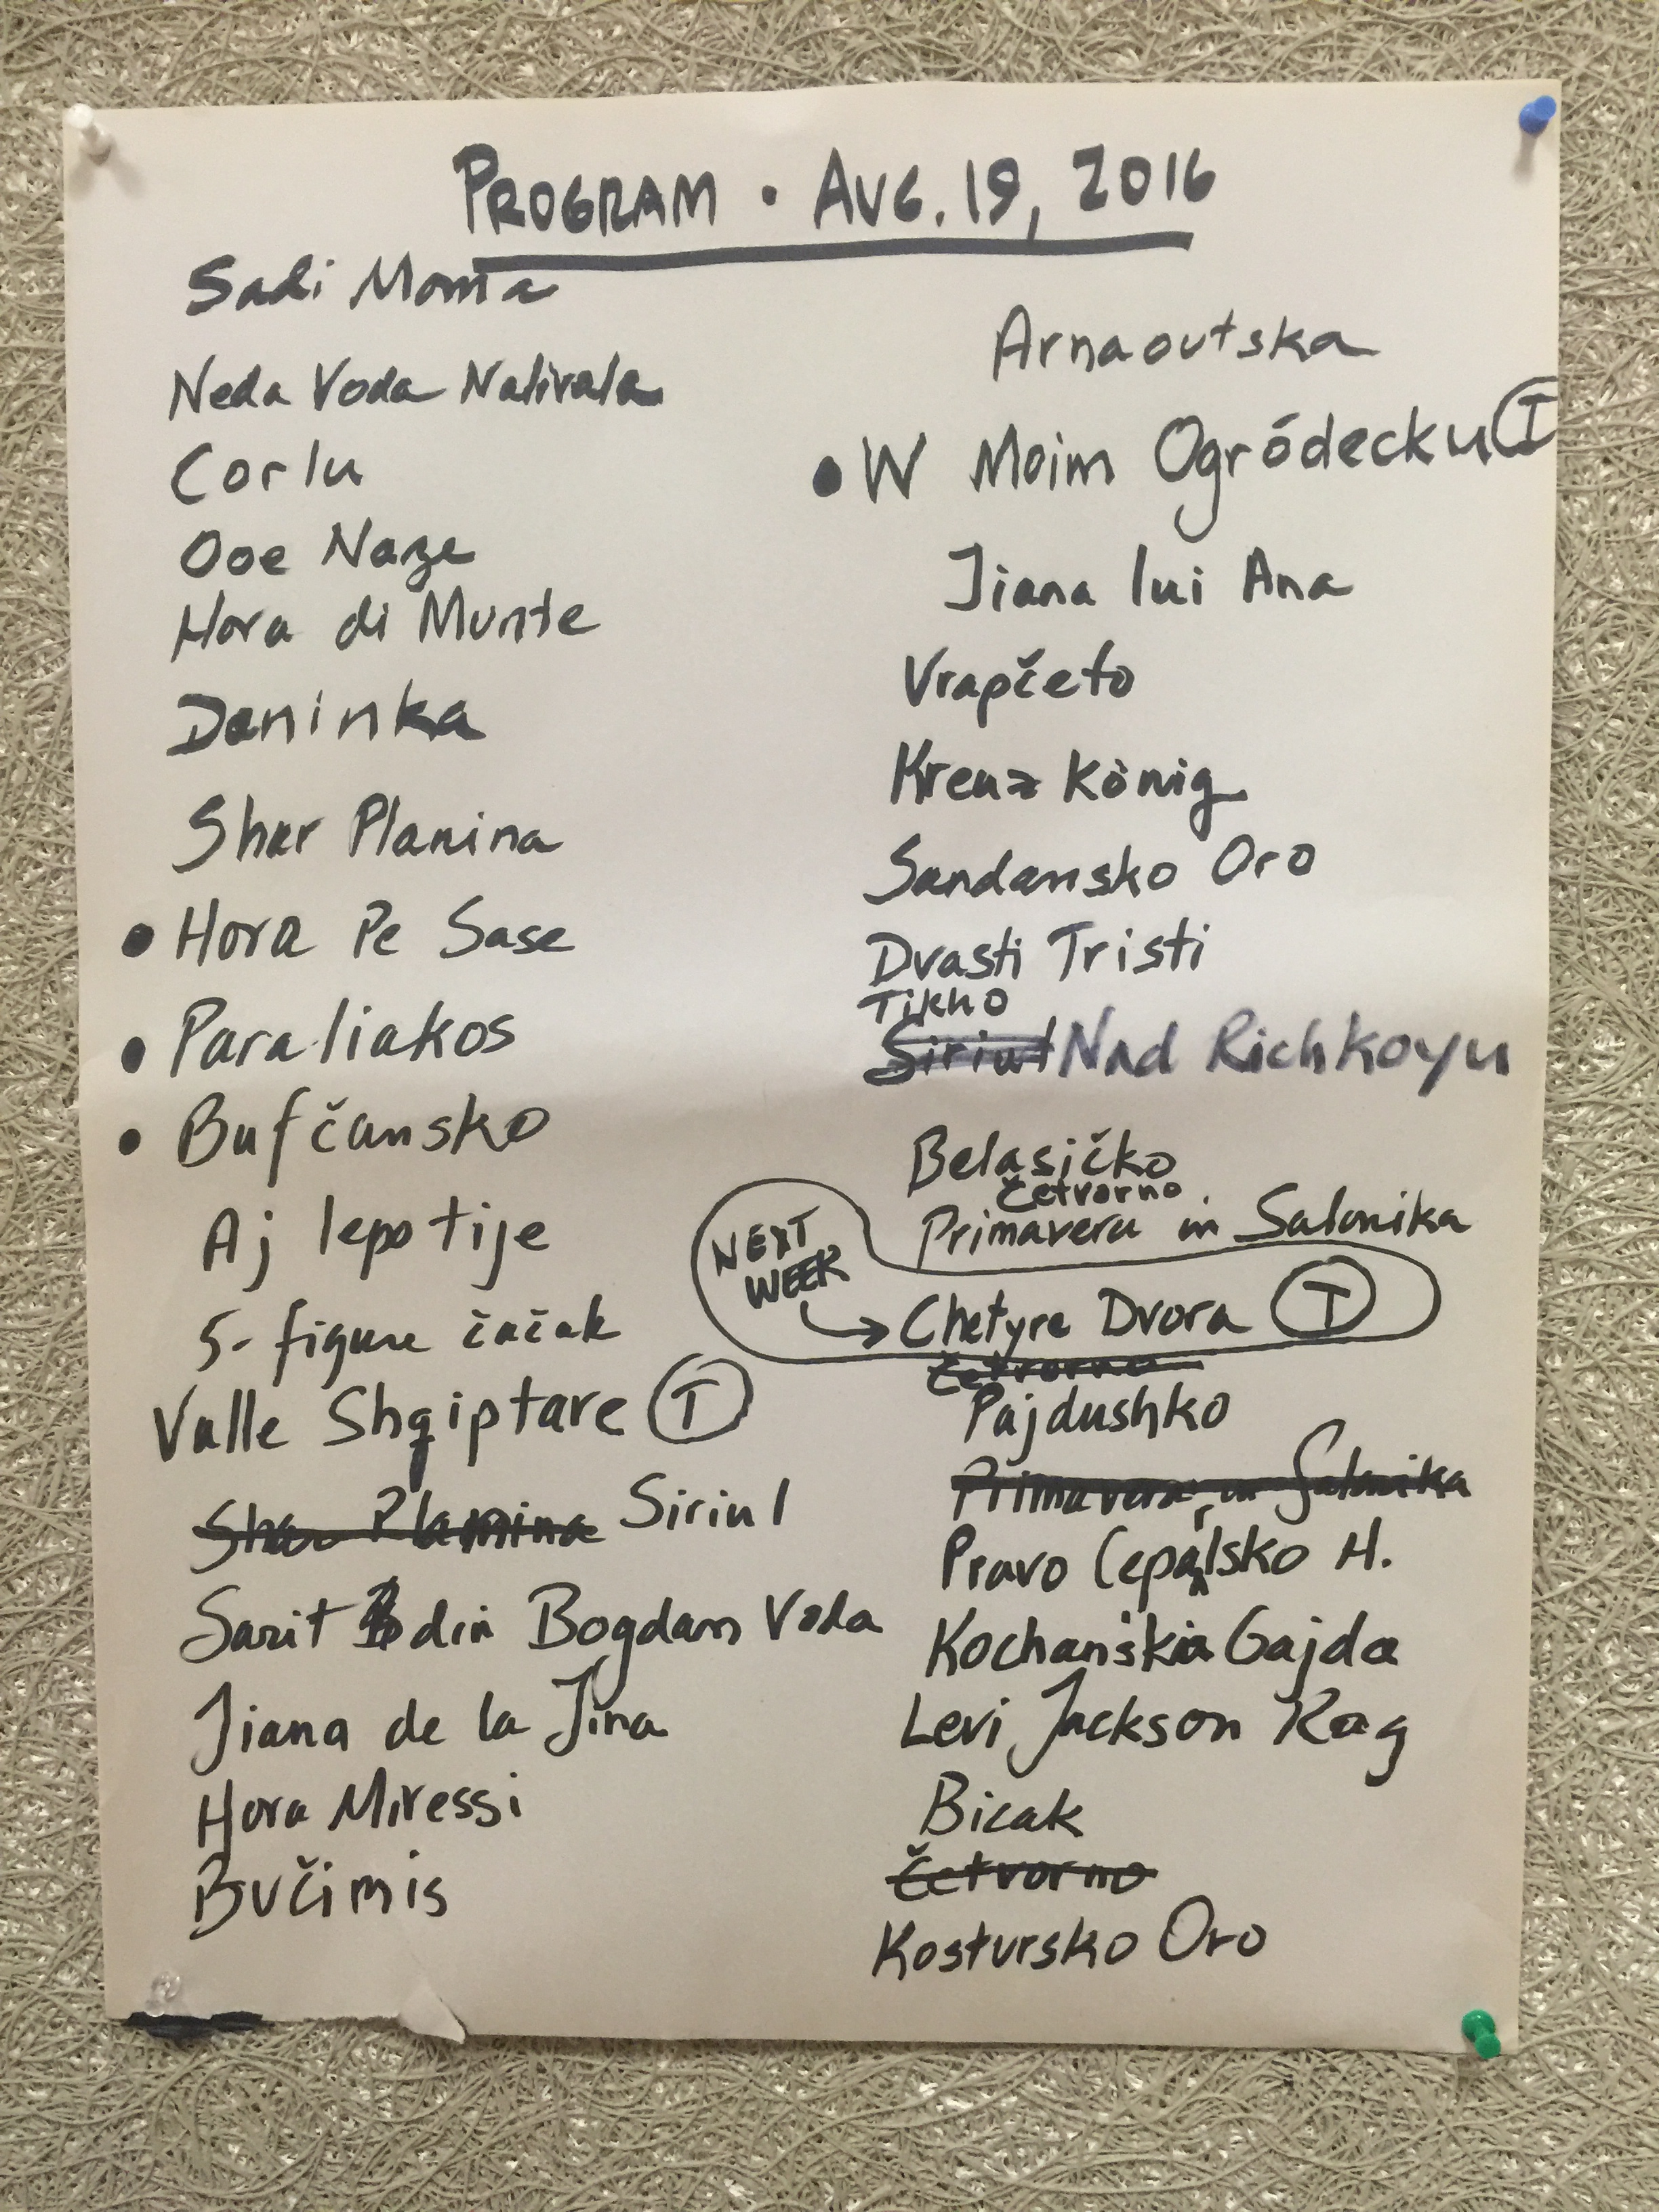 PROGRAM • AUG. 19, 2016
Sadi Moma
Neda Voda Nalivala
Corlu
Ooe Naze
Hora di Munte
Daninka
Shar Planina
• Hora Pe Sase
• Paraliakos
• Bufčansko
Aj lepo tije
5-figure čačak
Valle Shqiptare T
Shar Planina Siriul
Sarit din Bogdan Voda
Jiana de la Jina
Hora Miressi
Bučimis
Arnaoutska
• W Moim Ogródecku T
Jiana lui Ana
Vrapčeto
Kreuz König
Sandansko Oro
Dvasti Tristi
Tikho
Siriul Nad Richkoyu
Belasičko
Četvorno
Primavera in Salonika
NEXT
WEEK
→ Chetyre Dvora T
Četvorno
Pajdushko
Primavera in Salonika
Pravo Cepalsko H.
Kochańskia Gajda
Levi Jackson Rag
Bicak
Četvorno
Kostursko Oro